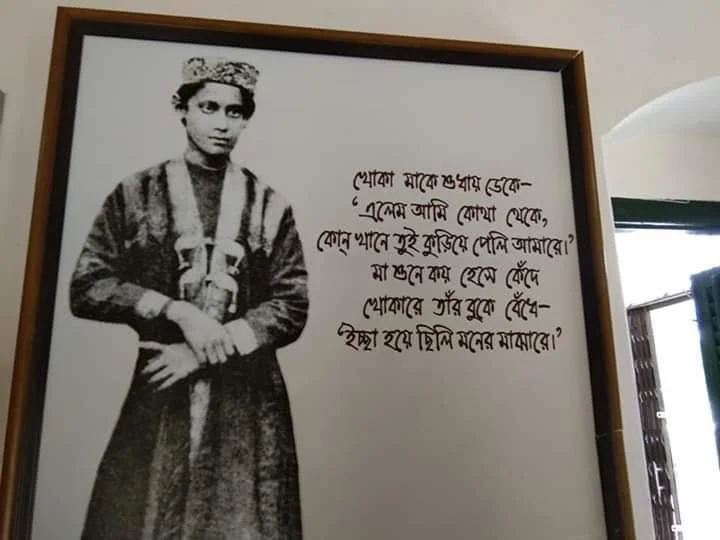 খোকা মাকে শুধায় ডেকে–
‘এলেম আমি কোথা থেকে,
কোন্ খানে তুই কুড়িয়ে পেলি আমারে।’
মা শুনে কয় হেসে কেঁদে
খোকারে তাঁর বুকে বেঁধে–
‘ইচ্ছা হয়ে ছিলি মনের মাঝারে।’